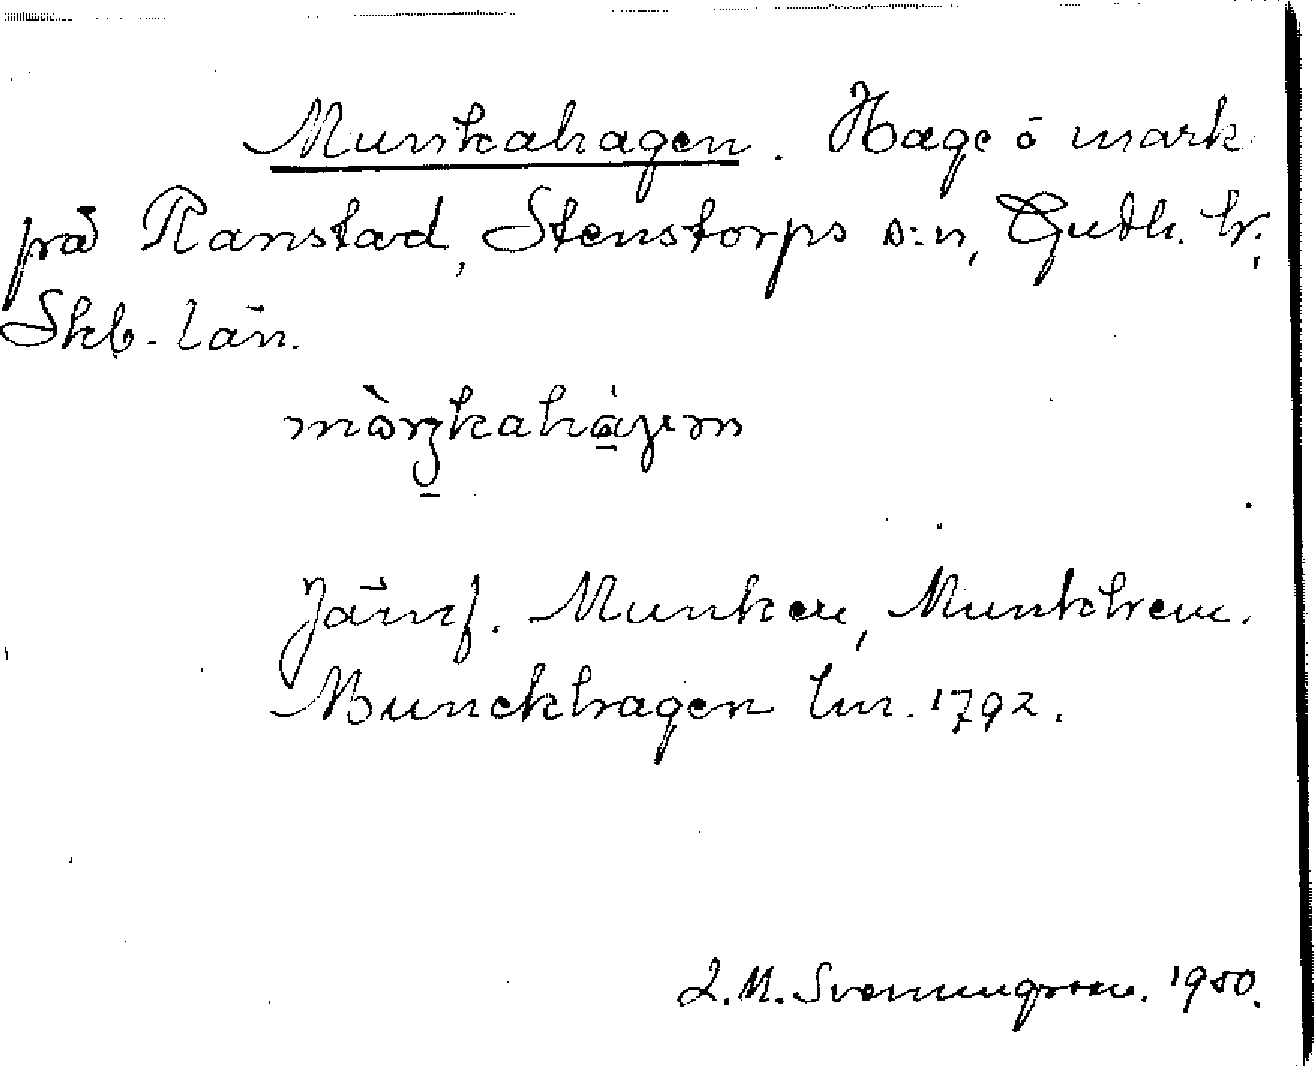 Munkahagen. Hage ö mark
på Ranstad, Stenstorps s:n, Gudh. hr.,
Skb. län.
mòŋkahàgen
Jämf. Munken, Munkhem.
Munckhagen lm. 1792.
L.M. Svenungsson. 1950.